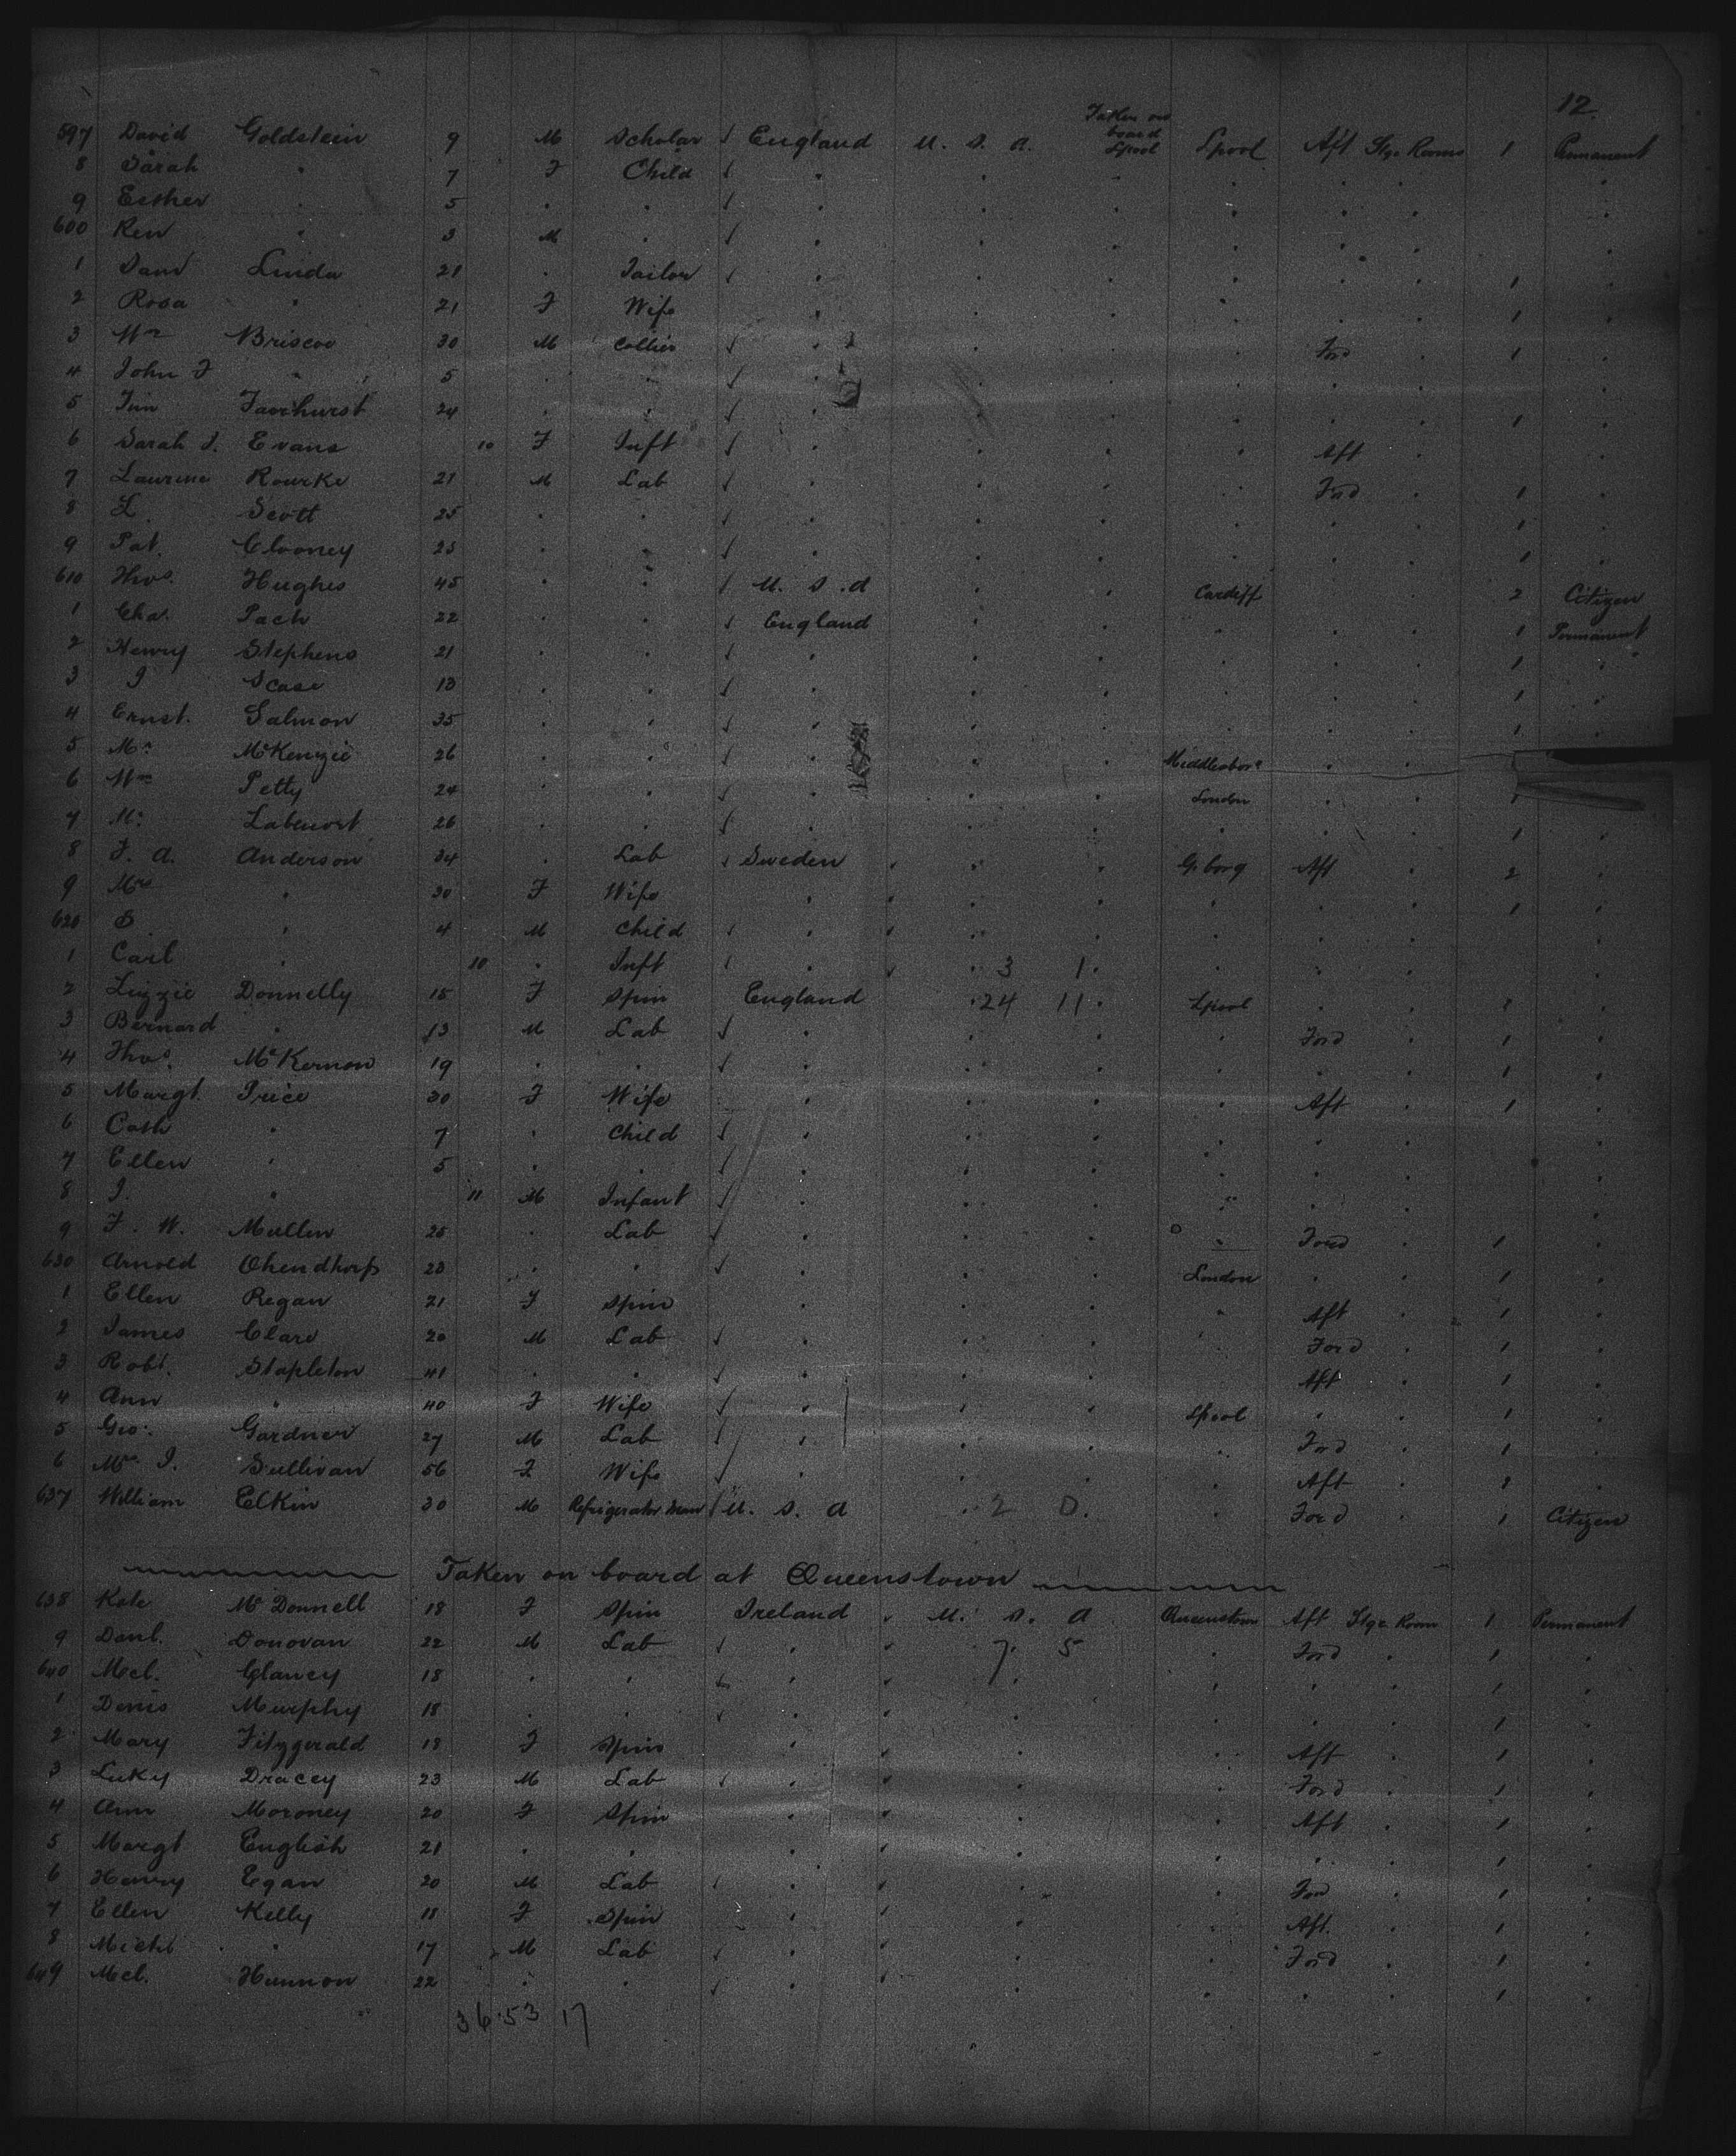 12.
Taken on
board
Lpool
597 David Goldstein 9 M Scholar England U. S. A. Lpool Aft Stge Rooms 1 Permanent
8 Sarah " 7 F Child
9 Esther " 5
600 " 3 M
1 Linda 21 Tailor 1
2 Rosa " 21 F Wife 1
3 Wm Briscoe 30 M Collier Ford 1
4 John F " 5
5 Jim Fairhurst 24 1
6 Sarah J. Evans 10 F Inft Aft
7 Rourke 21 M Lab Ford 1
8 L. Scott 25 1
9 Pat. Clooney 25 1
610 Thos. Hughes 45 U. S. A Cardiff 2 Citizen
1 Cha. Pach 22 England 1 Permanent
2 Henry Stephens 21 1
3 Scase 13 1
4 Ernst. Salmon 35 1
5 Mr McKenzie 26 Middlesboro
6 Wm Petty 24 London 1
7 Mr 26 1
8 F. A. Anderson 34 Lab Sweden G.borg Aft 2
9 Mrs " 30 F Wife 1
620 " 4 M Child
1 Carl " 10 Inft 3 1.
2 Lizzie Donnelly 15 F Spin England 24 11 Lpool
3 Bernard " 13 M Lab Ford 1
4 Thos. McKernon 19 1
5 Margt. Price 30 F Wife Aft 1
6 Cath " 7 Child
7 Ellen " 5
8 " 11 M Infant
9 F. W. Mullen 25 Lab Ford 1
630 Arnold 23 London 1
1 Ellen Regan 21 F Spin Aft 1
2 James Clare 20 M Lab Ford 1
3 Robt. Stapleton 41 Aft 1
4 Ann " 40 F Wife Lpool 1
5 Geo. Gardner 27 M Lab Ford 1
6 Mrs J. Sullivan 56 F Wife Aft
637 William Elkin 30 M Refrigerator Man U. S. A 2 0. Ford 1 Citizen
Taken on board at Queenstown
638 Kate McDonnell 18 F Spin Ireland U. S. A Queenstown Aft Stge Room 1 Permanent
9 Danl. Donovan 22 M Lab 7. 5 Ford 1
640 Mcl. Clancy 18 1
1 Denis Murphy 18 1
2 Mary Fitzgerald 18 F Spin Aft 1
3 Luky Dracey 23 M Lab Ford 1
4 Ann Moroney 20 F Spin Aft 1
5 Margt English 21 1
6 Henry Egan 20 M Lab Ford 1
7 Ellen Kelly 18 F Spin Aft. 1
8 Michl " 17 M Lab Ford 1
649 Mcl. Hannon 22 1
36 53 17